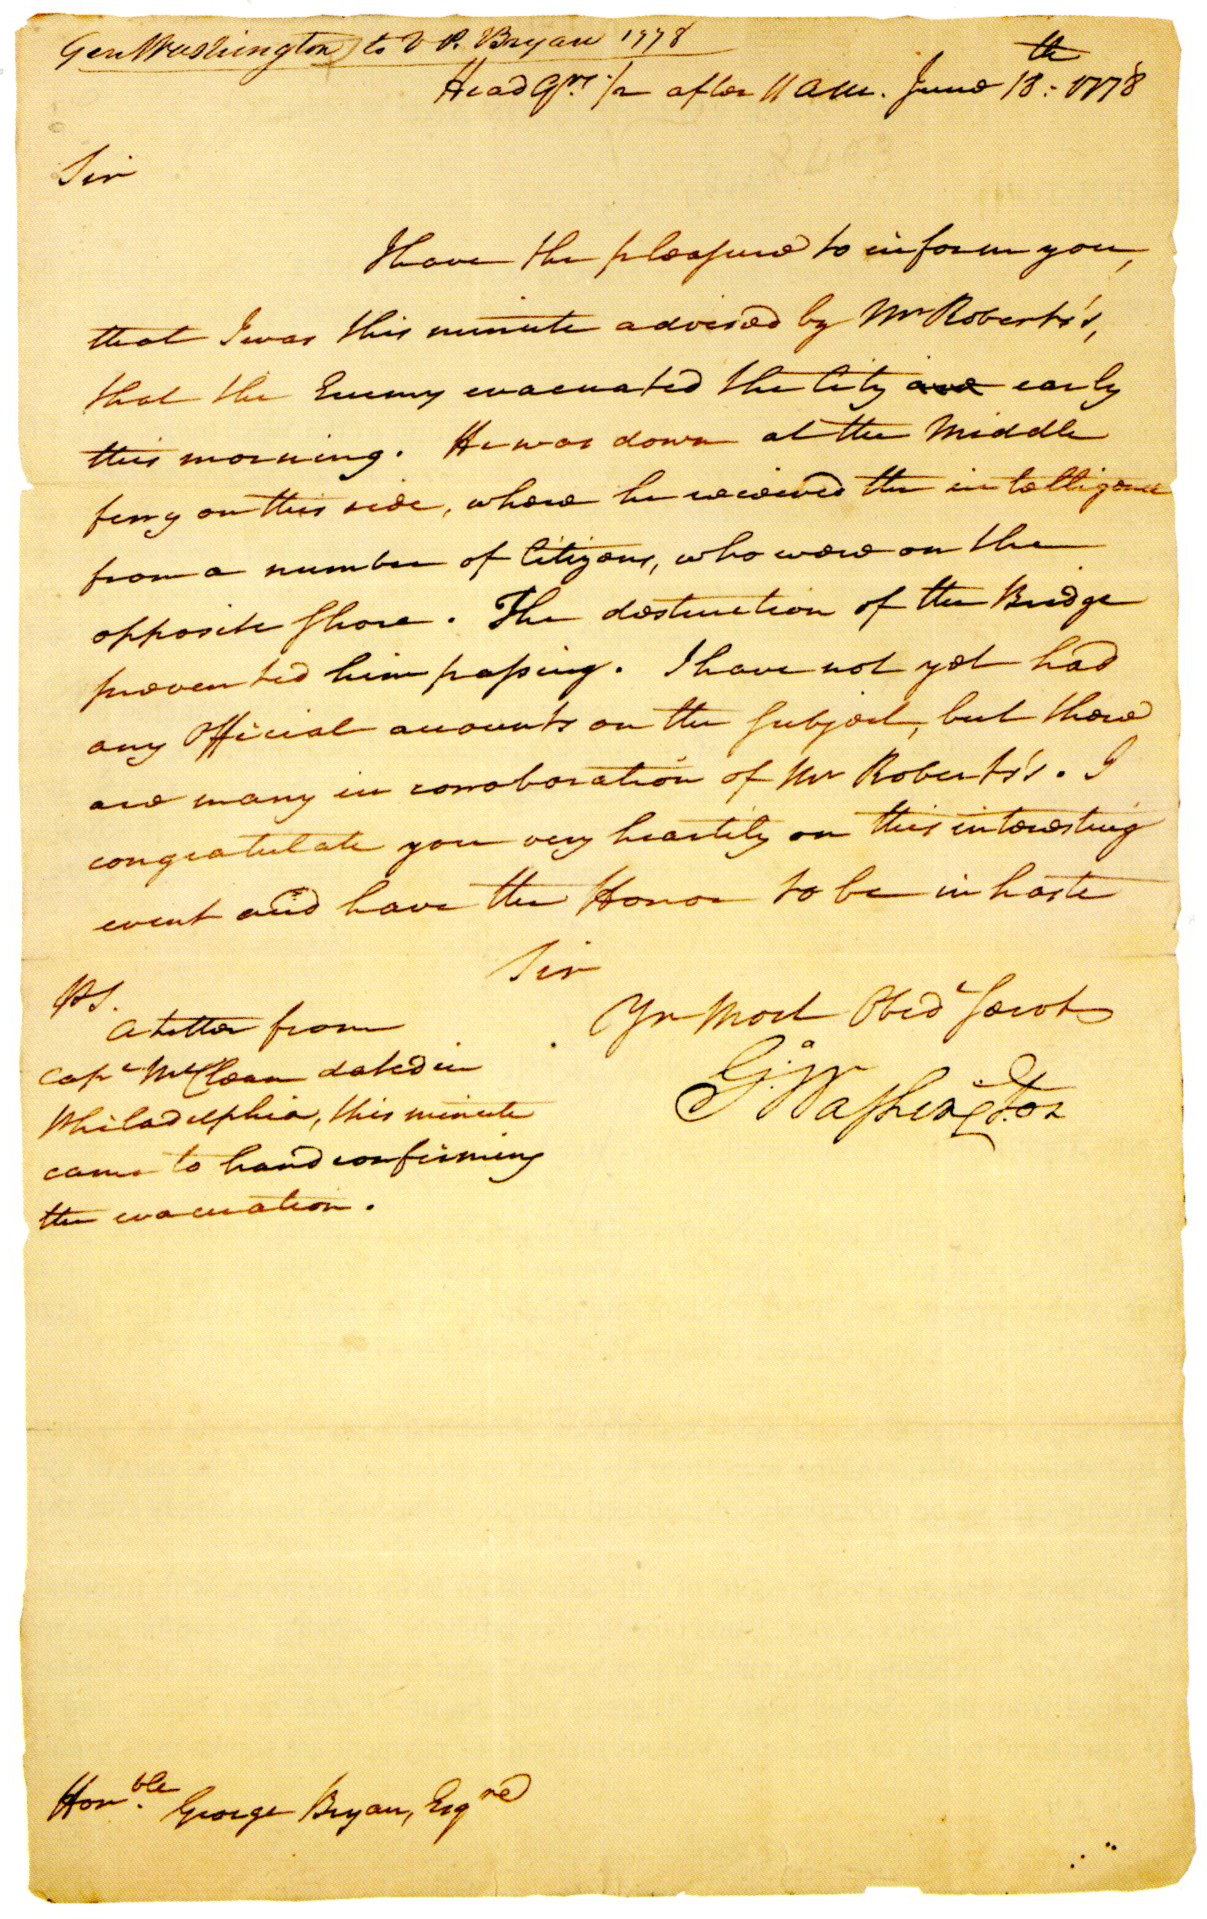 Gen Washington to V P. Bryan 1778
Head Qrs. 1/2 after 11 AM. June 18th: 1778
Sir
I have the pleasure to inform you,
that I was this minute advised by Mr Roberts's,
that the Enemy evacuated the City early
this morning. He was down at the Middle
ferry on this side, where he received the intelligence
from a number of Citizens, who were on the
opposite shore. The destruction of the Bridge
prevented him passing. I have not yet had
any Official accounts on the subject, but there
are many in corroboration of Mr Roberts's. I
congratulate you very heartily on this interesting
event and have the Honor to be in haste
Sir
Yr Most Obedt Servt
Go: Washington
PS.
A Letter from
Capt McClean dated in
Philadelphia, this minute
came to hand confirming
the evacuation.
Honble. George Bryan, Esqre